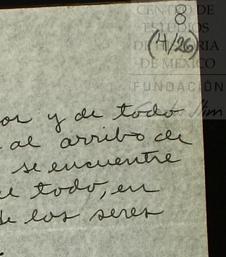 8
(4/26)
CENTRO DE
ESTUDIOS
DE HISTORIA
DE MÉXICO
FUNDACIÓN
y de todo
al arribo de
se encuentre
todo, en
de los seres